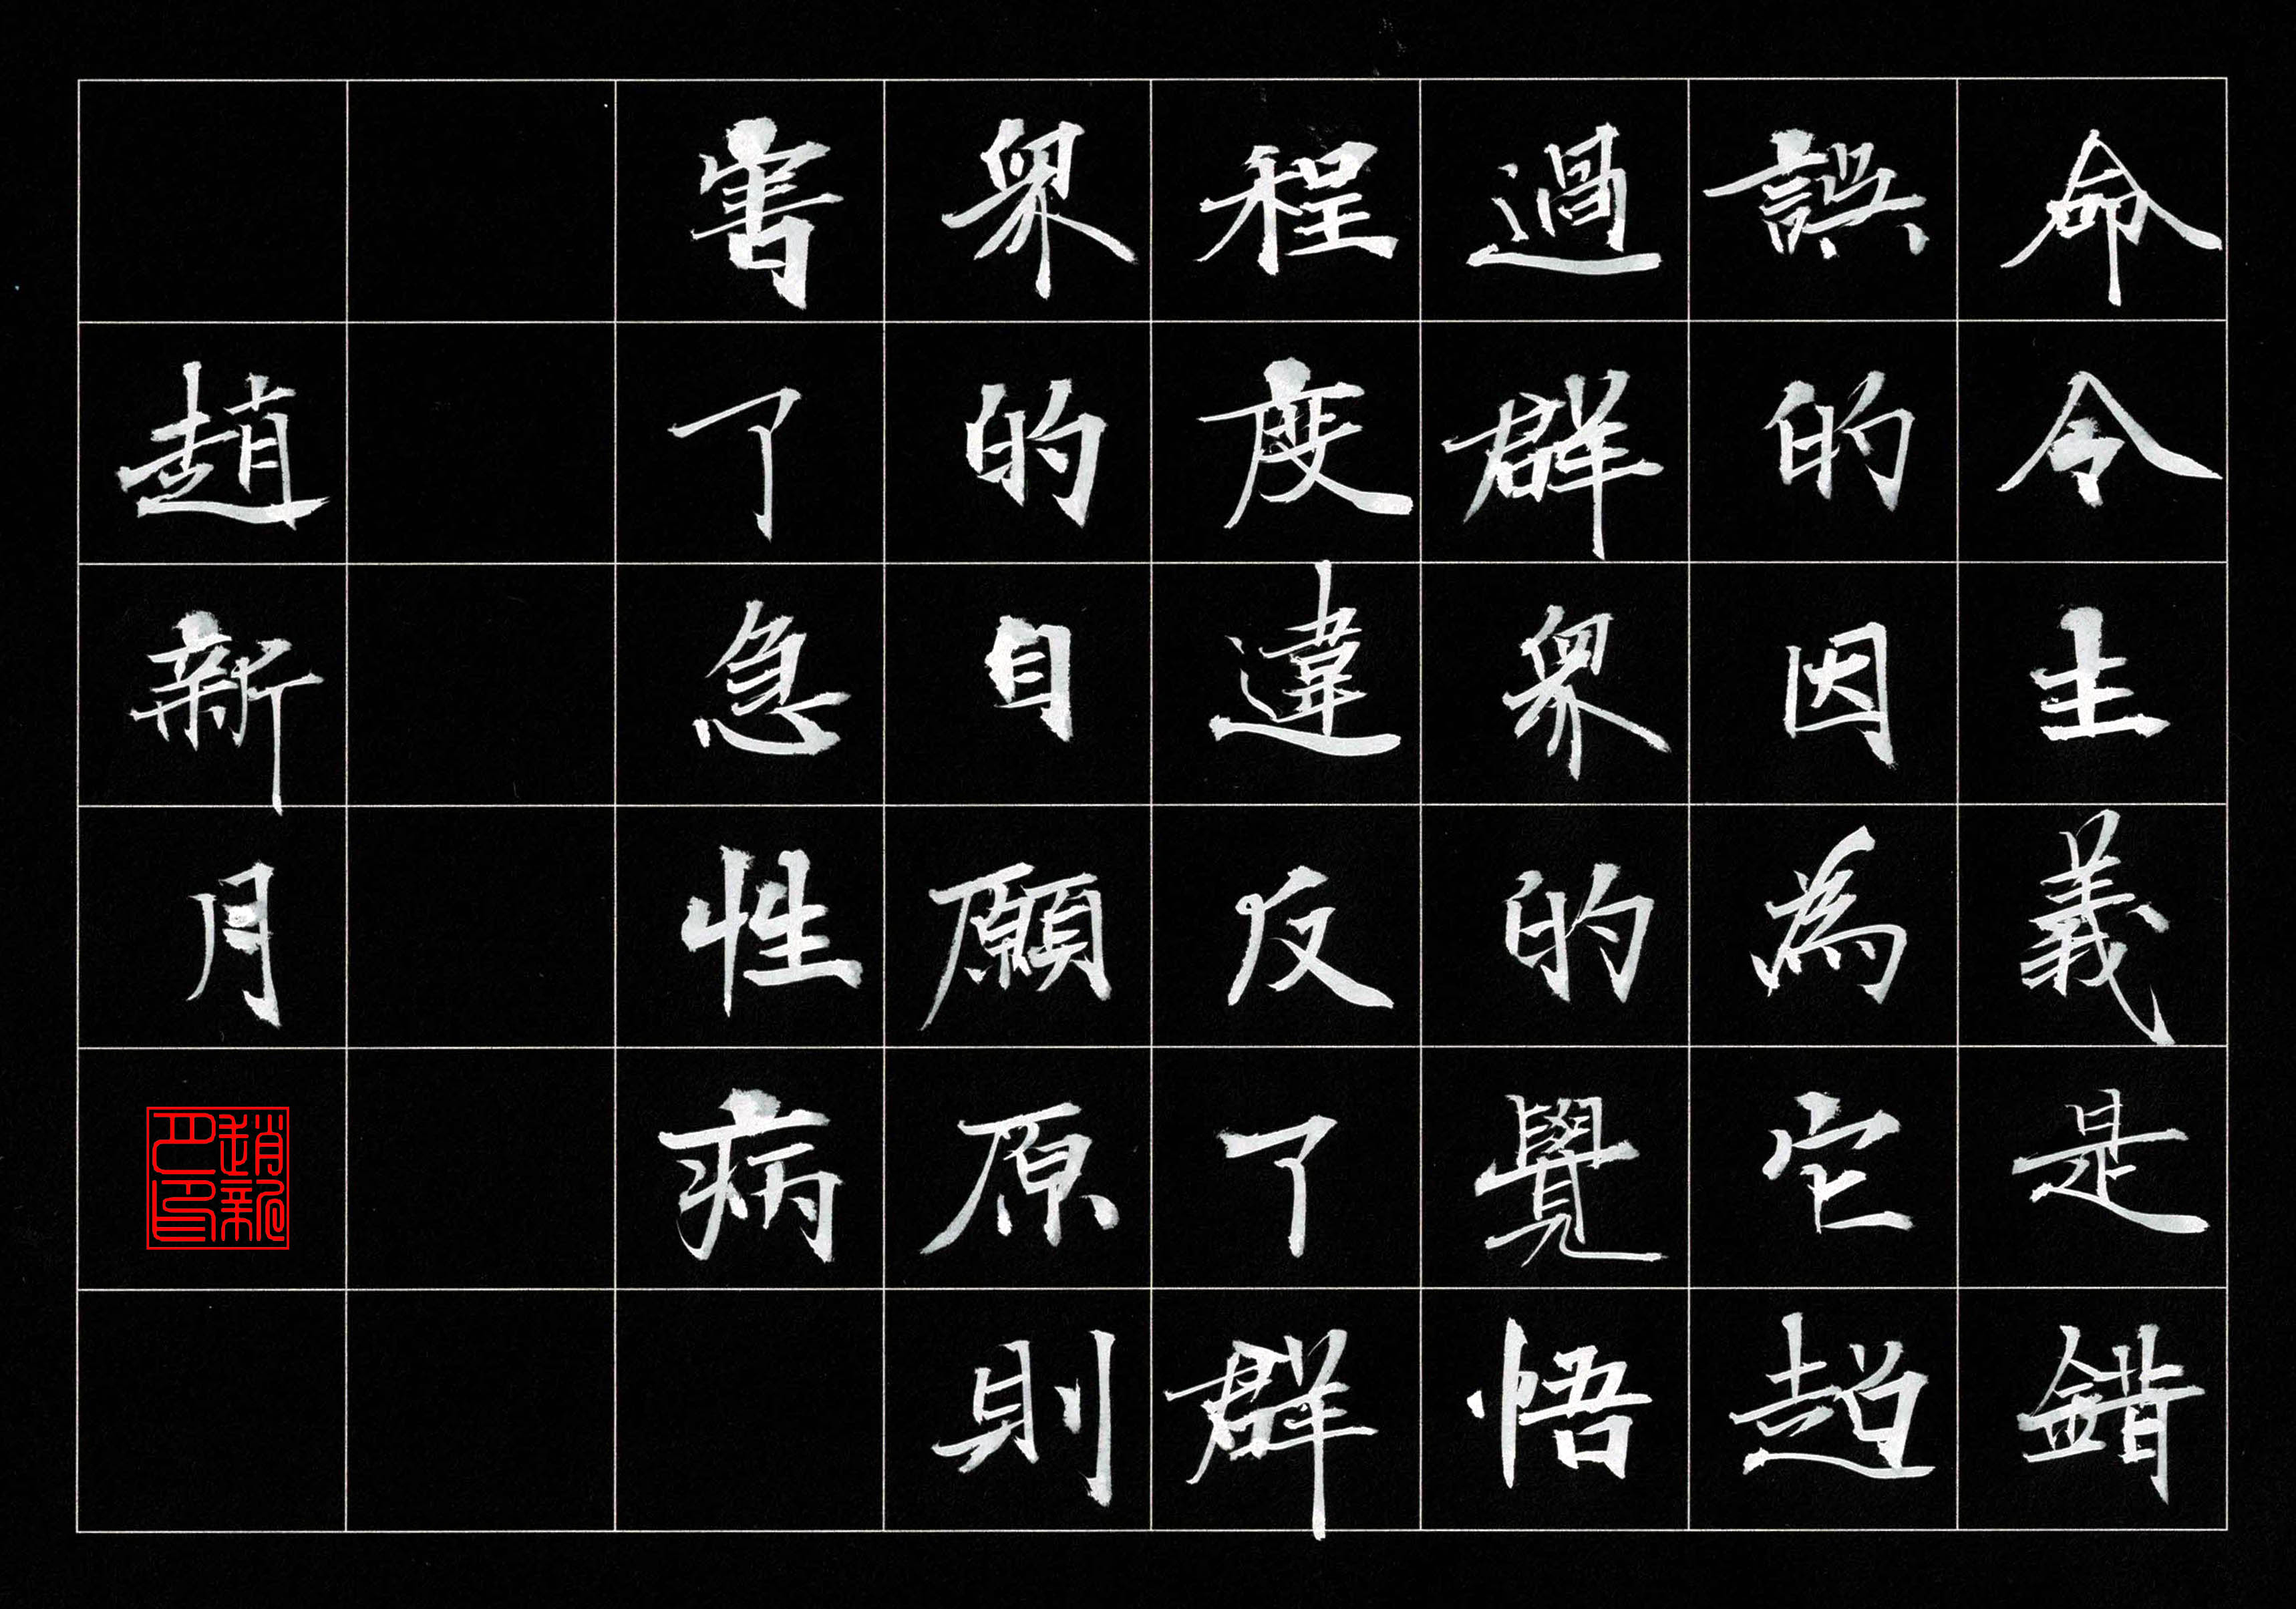 命令主義是錯
誤的因為它超
過群眾的覺悟
程度違反了群
眾的自願原則
害了急性病
趙新月
趙新月印